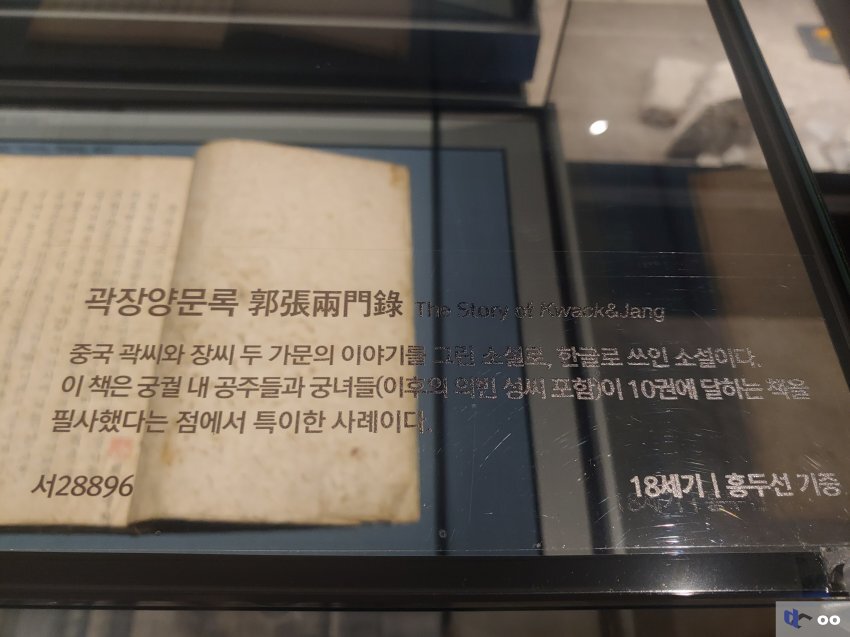 곽장양문록 郭張兩門錄 The Story of Kwack&Jang
중국 곽씨와 장씨 두 가문의 이야기를 그린 소설로, 한글로 쓰인 소설이다.
이 책은 궁궐 내 공주들과 궁녀들(이후의 의빈 성씨 포함)이 10권에 달하는 책을
필사했다는 점에서 특이한 사례이다.
서28896
18세기 | 홍두선 기증